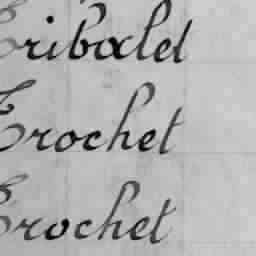 Tribalet
Trochet
Trochet